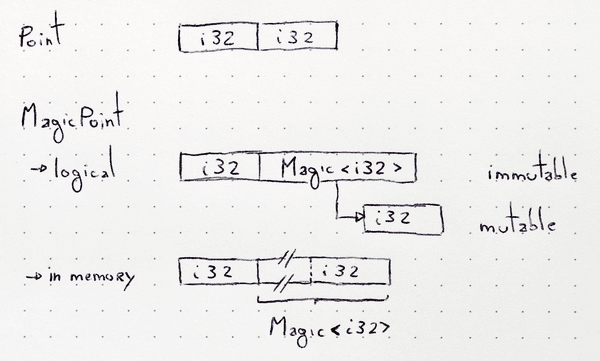 Point i32 i32
MagicPoint
→ logical i32 Magic<i32> immutable
i32 mutable
→ in memory i32 i32
Magic<i32>